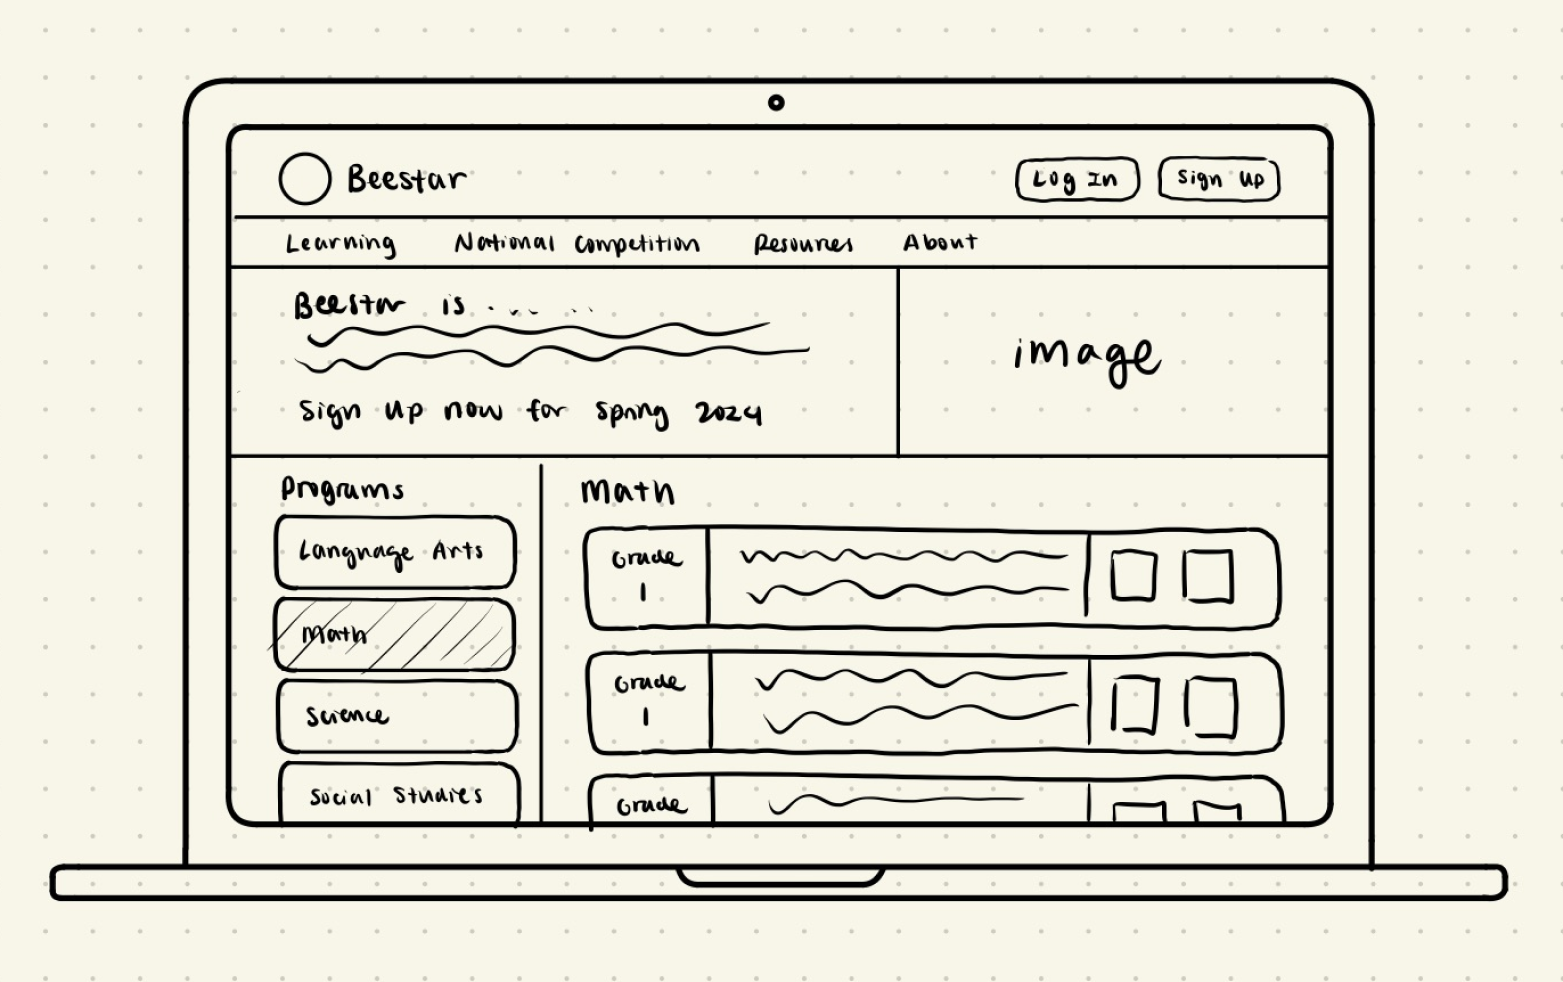 Beestar
Log In
Sign Up
Learning
National Competition
Resources
About
Beestar is . . . . . .
Sign up now for Spring 2024
image
Programs
Language Arts
Math
Science
Social Studies
Math
Grade
1
Grade
1
Grade